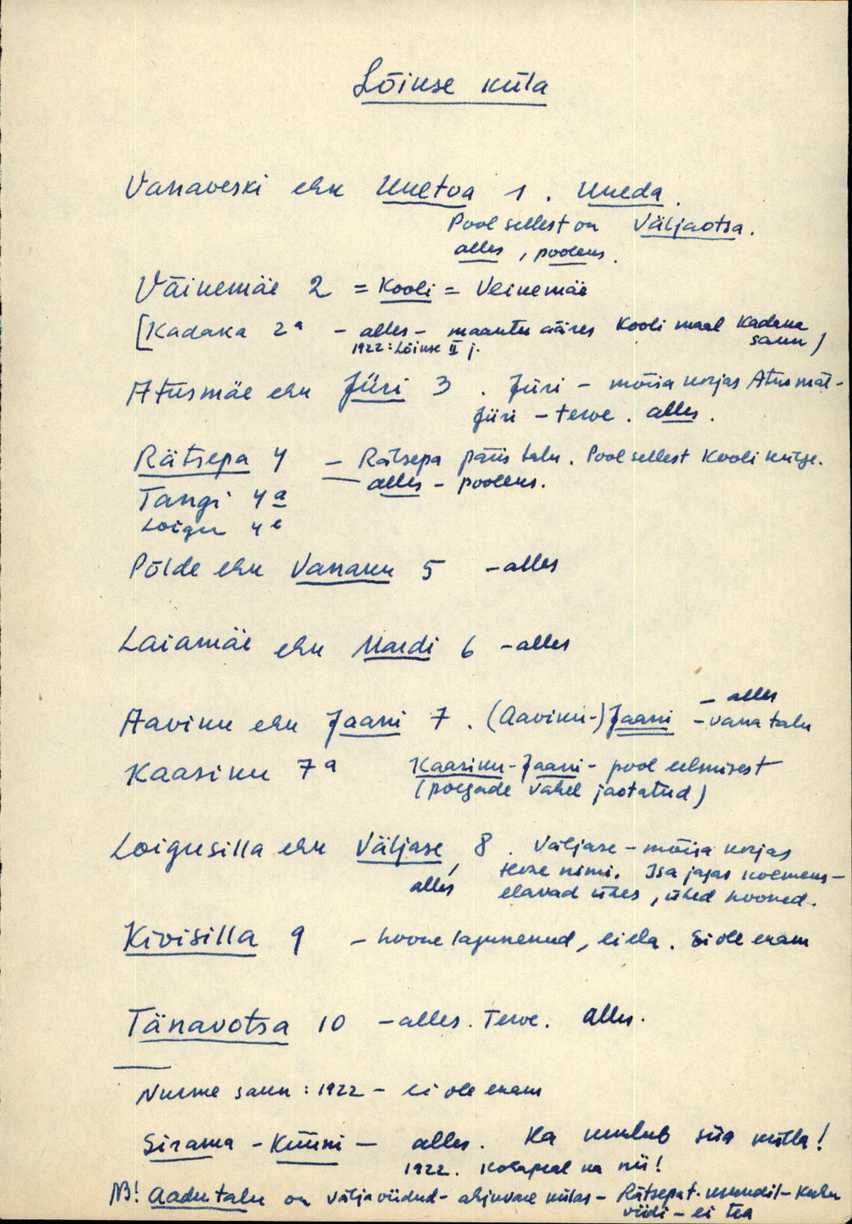 Lõinse küla
Vanaveski ehk Uuetoa 1. Uueda.
Pool sellest on Väljaotsa.
alles, pooleks.
Väinemäe 2 = Kooli = Veinemäe
[Kadaka 2a - alles - maantee ääres Kooli maal Kadaka
1922: Lõinse II j. saun)
Atusmäe ehk Jüri 3. Jüri - mõisa korjas Atusmäe-
Jüri - terve. alles.
Rätsepa 4 - Rätsepa päris talu. Pool sellest Kooli külge.
alles - pooleks.
Tangi 4a
Loigu 4b
Põlde ehk Vanaku 5 - alles
Laiamäe ehk Mardi 6 - alles
- alles
Aaviku ehk Jaani 7. (Aaviku-)Jaani - vana talu
Kaasiku 7a Kaasiku-Jaani - pool eelmisest
(poegade vahel jaotatud)
Loigusilla ehk Väljase 8. Väljase - mõisa korjas
alles terve nimi. Isa jagas kolmeks -
elavad ühes, ühed hooned.
Kivisilla 9 - hoone lagunenud, ei ela. Ei ole enam
Tänavotsa 10 - alles. Terve. alles.
Nurme saun: 1922 - ei ole enam
Sirama - Küüni - alles. Ka kuulub siia külla!
1922. Kohapeal ka nii!
NB! Aadu talu on välja viidud - ahjuvare külas - Rätsepa t. - kuhu
viidi - ei tea